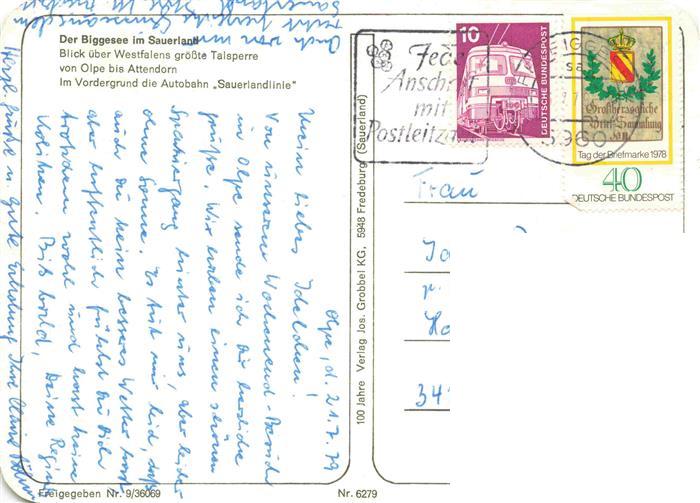 Der Biggesee im Sauerland
Blick über Westfalens größte Talsperre
von Olpe bis Attendorn
Im Vordergrund die Autobahn „Sauerlandlinie"
Olpe, d. 21.7.79
Mein liebes Idelchen!
Von unserem Wochenend-
in Olpe sende ich Dir herzliche
Grüße. Wir haben einen schönen
Spaziergang hinter uns, aber leider
ohne Sonne. Es tut mir leid, daß
auch Du kein besseres Wetter hast
aber hoffentlich fühlst Du Dich
trotzdem wohl und hast keine
Koliken. Bis bald, Deine Regina
Herzl. Grüße u. gute Erholung Ihre
Auch von mir
recht herzliche
Freigegeben Nr. 9/36069
Nr. 6279
100 Jahre Verlag Jos. Grobbel KG, 5948 Fredeburg (Sauerland)
10
DEUTSCHE BUNDESPOST
mit
Großherzogliche
Brief-Sammlung
Tag der Briefmarke 1978
40
DEUTSCHE BUNDESPOST
Frau
34